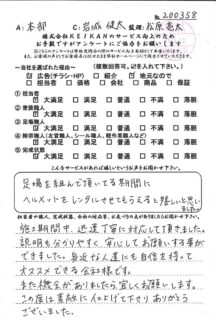 No. 200358
A:本部 C:宮城 健太 監理:松原亮太
株式会社KEIKANのサービス向上のため
お手数ですがアンケートにご協力をお願いします
～当社を選ばれた理由～ (複数回答可。☑をご記入して下さい。)
☑広告(チラシ・HP) □紹介 ☑地元なので
① 担当者
☑大満足 □満足 □普通 □不満 □落胆
② 担当者
☑大満足 □満足 □普通 □不満 □落胆
☑大満足 □満足 □普通 □不満 □落胆
④ 附帯職人(左官職人、シール職人、軽作業職人など)
☑大満足 □満足 □普通 □不満 □落胆
⑤ 完成状態
☑大満足 □満足 □普通 □不満 □落胆
～こんなサービスがあれば嬉しいというお声をお聞かせ下さい～
足場を組んで頂いてる期間に
ヘルメットをレンタルさせてもらえると嬉しいと思い
ました。
強工期間中、迅速丁寧に対応して頂きました。
説明も分かりやすく、安心してお願いする事が
できました。身近な人達にも自信を持って
オススメできる会社様です。
また機会がありましたら宜しくお願いします。
この度は素敵に仕上げて下さりありがとう
ございました。